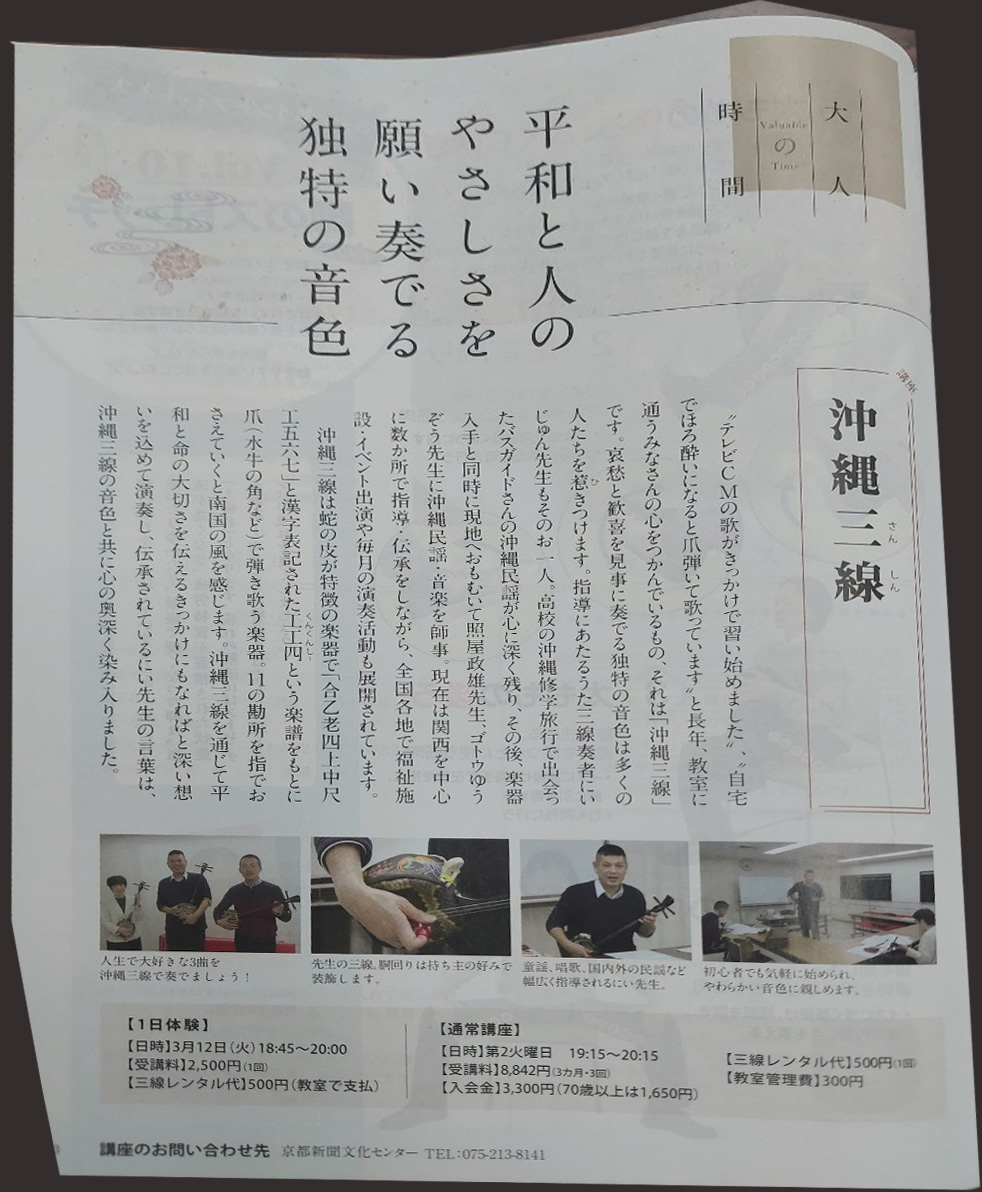 大人
の
時間
Valuable
Time
平和と人の
やさしさを
願い奏でる
独特の音色
講座
沖縄三線
さんしん
〝テレビCMの歌がきっかけで習い始めました〟、〝自宅
でほろ酔いになると爪弾いて歌っています〟と長年、教室に
通うみなさんの心をつかんでいるもの、それは「沖縄三線」
です。哀愁と歓喜を見事に奏でる独特の音色は多くの
人たちを惹きつけます。指導にあたるうた三線奏者にい
ひ
じゅん先生もそのお一人。高校の沖縄修学旅行で出会っ
たバスガイドさんの沖縄民謡が心に深く残り、その後、楽器
入手と同時に現地へおもむいて照屋政雄先生、ゴトウゆう
ぞう先生に沖縄民謡・音楽を師事。現在は関西を中心
に数か所で指導・伝承をしながら、全国各地で福祉施
設・イベント出演や毎月の演奏活動も展開されています。
沖縄三線は蛇の皮が特徴の楽器で「合乙老四上中尺
工五六七」と漢字表記された工工四という楽譜をもとに
くんくんしー
爪(水牛の角など)で弾き歌う楽器。11の勘所を指でお
さえていくと南国の風を感じます。沖縄三線を通じて平
和と命の大切さを伝えるきっかけにもなればと深い想
いを込めて演奏し、伝承されているにい先生の言葉は、
沖縄三線の音色と共に心の奥深く染み入りました。
人生で大好きな3曲を
沖縄三線で奏でましょう!
先生の三線。胴回りは持ち主の好みで
装飾します。
童謡、唱歌、国内外の民謡など
幅広く指導されるにい先生。
初心者でも気軽に始められ、
やわらかい音色に親しめます。
【1日体験】
【日時】3月12日(火)18:45〜20:00
【受講料】2,500円(1回)
【三線レンタル代】500円(教室で支払)
【通常講座】
【日時】第2火曜日 19:15〜20:15
【受講料】8,842円(3カ月・3回)
【入会金】3,300円(70歳以上は1,650円)
【三線レンタル代】500円(1回)
【教室管理費】300円
講座のお問い合わせ先 京都新聞文化センター TEL:075-213-8141